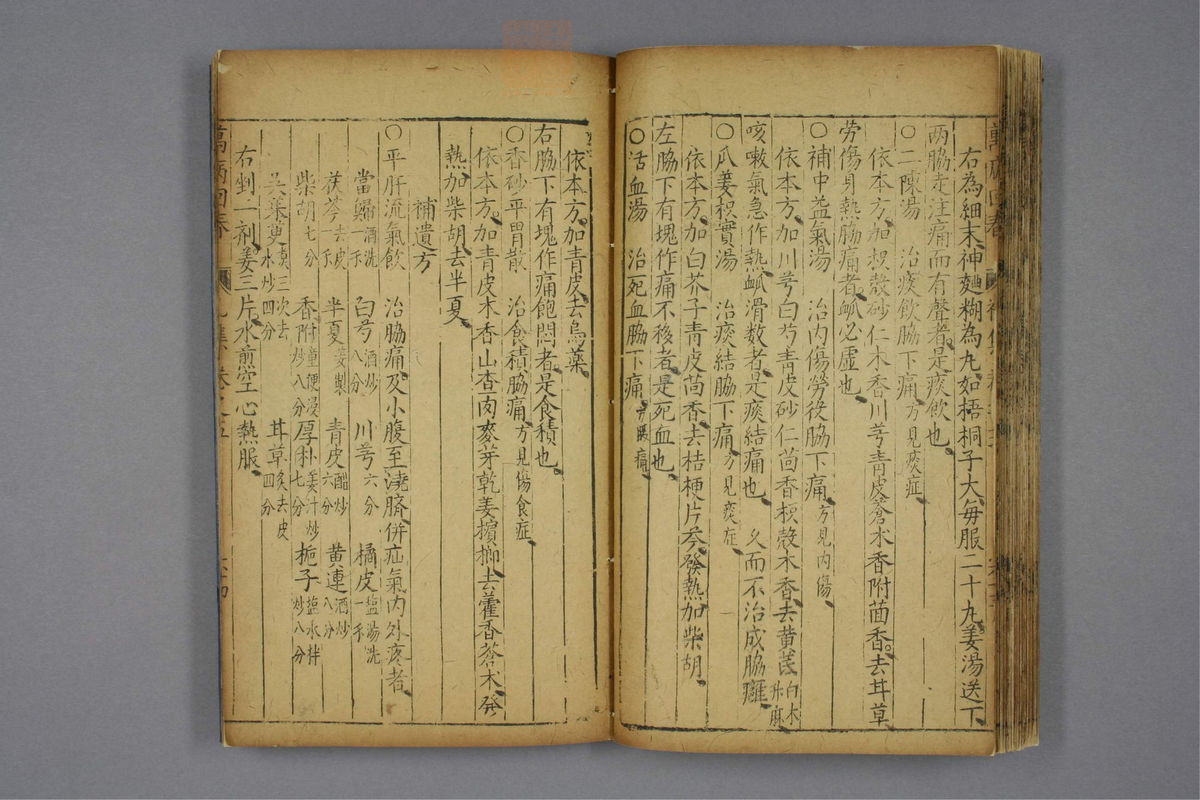 右為細末神麯糊為丸如梧桐子大每服二十丸姜湯送下
兩脇走注痛而有聲者是痰飲也
○二陳湯 治痰飲脇下痛方見痰症
依本方加枳殼砂仁木香川芎青皮蒼朮香附茴香去甘草
勞傷身熱脇痛者脉必虛也
○補中益氣湯 治內傷勞役脇下痛方見內傷
依本方加川芎白芍青皮砂仁茴香枳殼木香去黃芪白朮升麻
咳嗽氣急作熱脉滑數者是痰結痛也 久而不治成脇癰
○瓜蔞枳實湯 治痰結脇下痛方見痰症
依本方加白芥子青皮茴香去桔梗片芩發熱加柴胡
左脇下有塊作痛不移者是死血也
○活血湯 治死血脇下痛方見腹痛
依本方加青皮去烏藥
右脇下有塊作痛飽悶者是食積也
○香砂平胃散 治食積脇痛方見傷食症
依本方加青皮木香山查肉麥芽乾姜檳榔去藿香蒼朮發
熱加柴胡去半夏
補遺方
○平肝流氣飲 治脇痛及小腹至澆臍併疝氣內外疼者
當歸酒洗一錢 白芍酒炒八分 川芎六分 橘皮鹽湯洗一錢
茯苓去皮一錢 半夏姜製 青皮醋炒六分 黃連酒炒八分
柴胡七分 香附童便浸炒八分 厚朴姜汁炒七分 梔子鹽水拌炒八分
吳茱萸煮三次去水炒四分 甘草炙去皮四分
右剉一劑姜三片水煎空心熱服
萬病回春